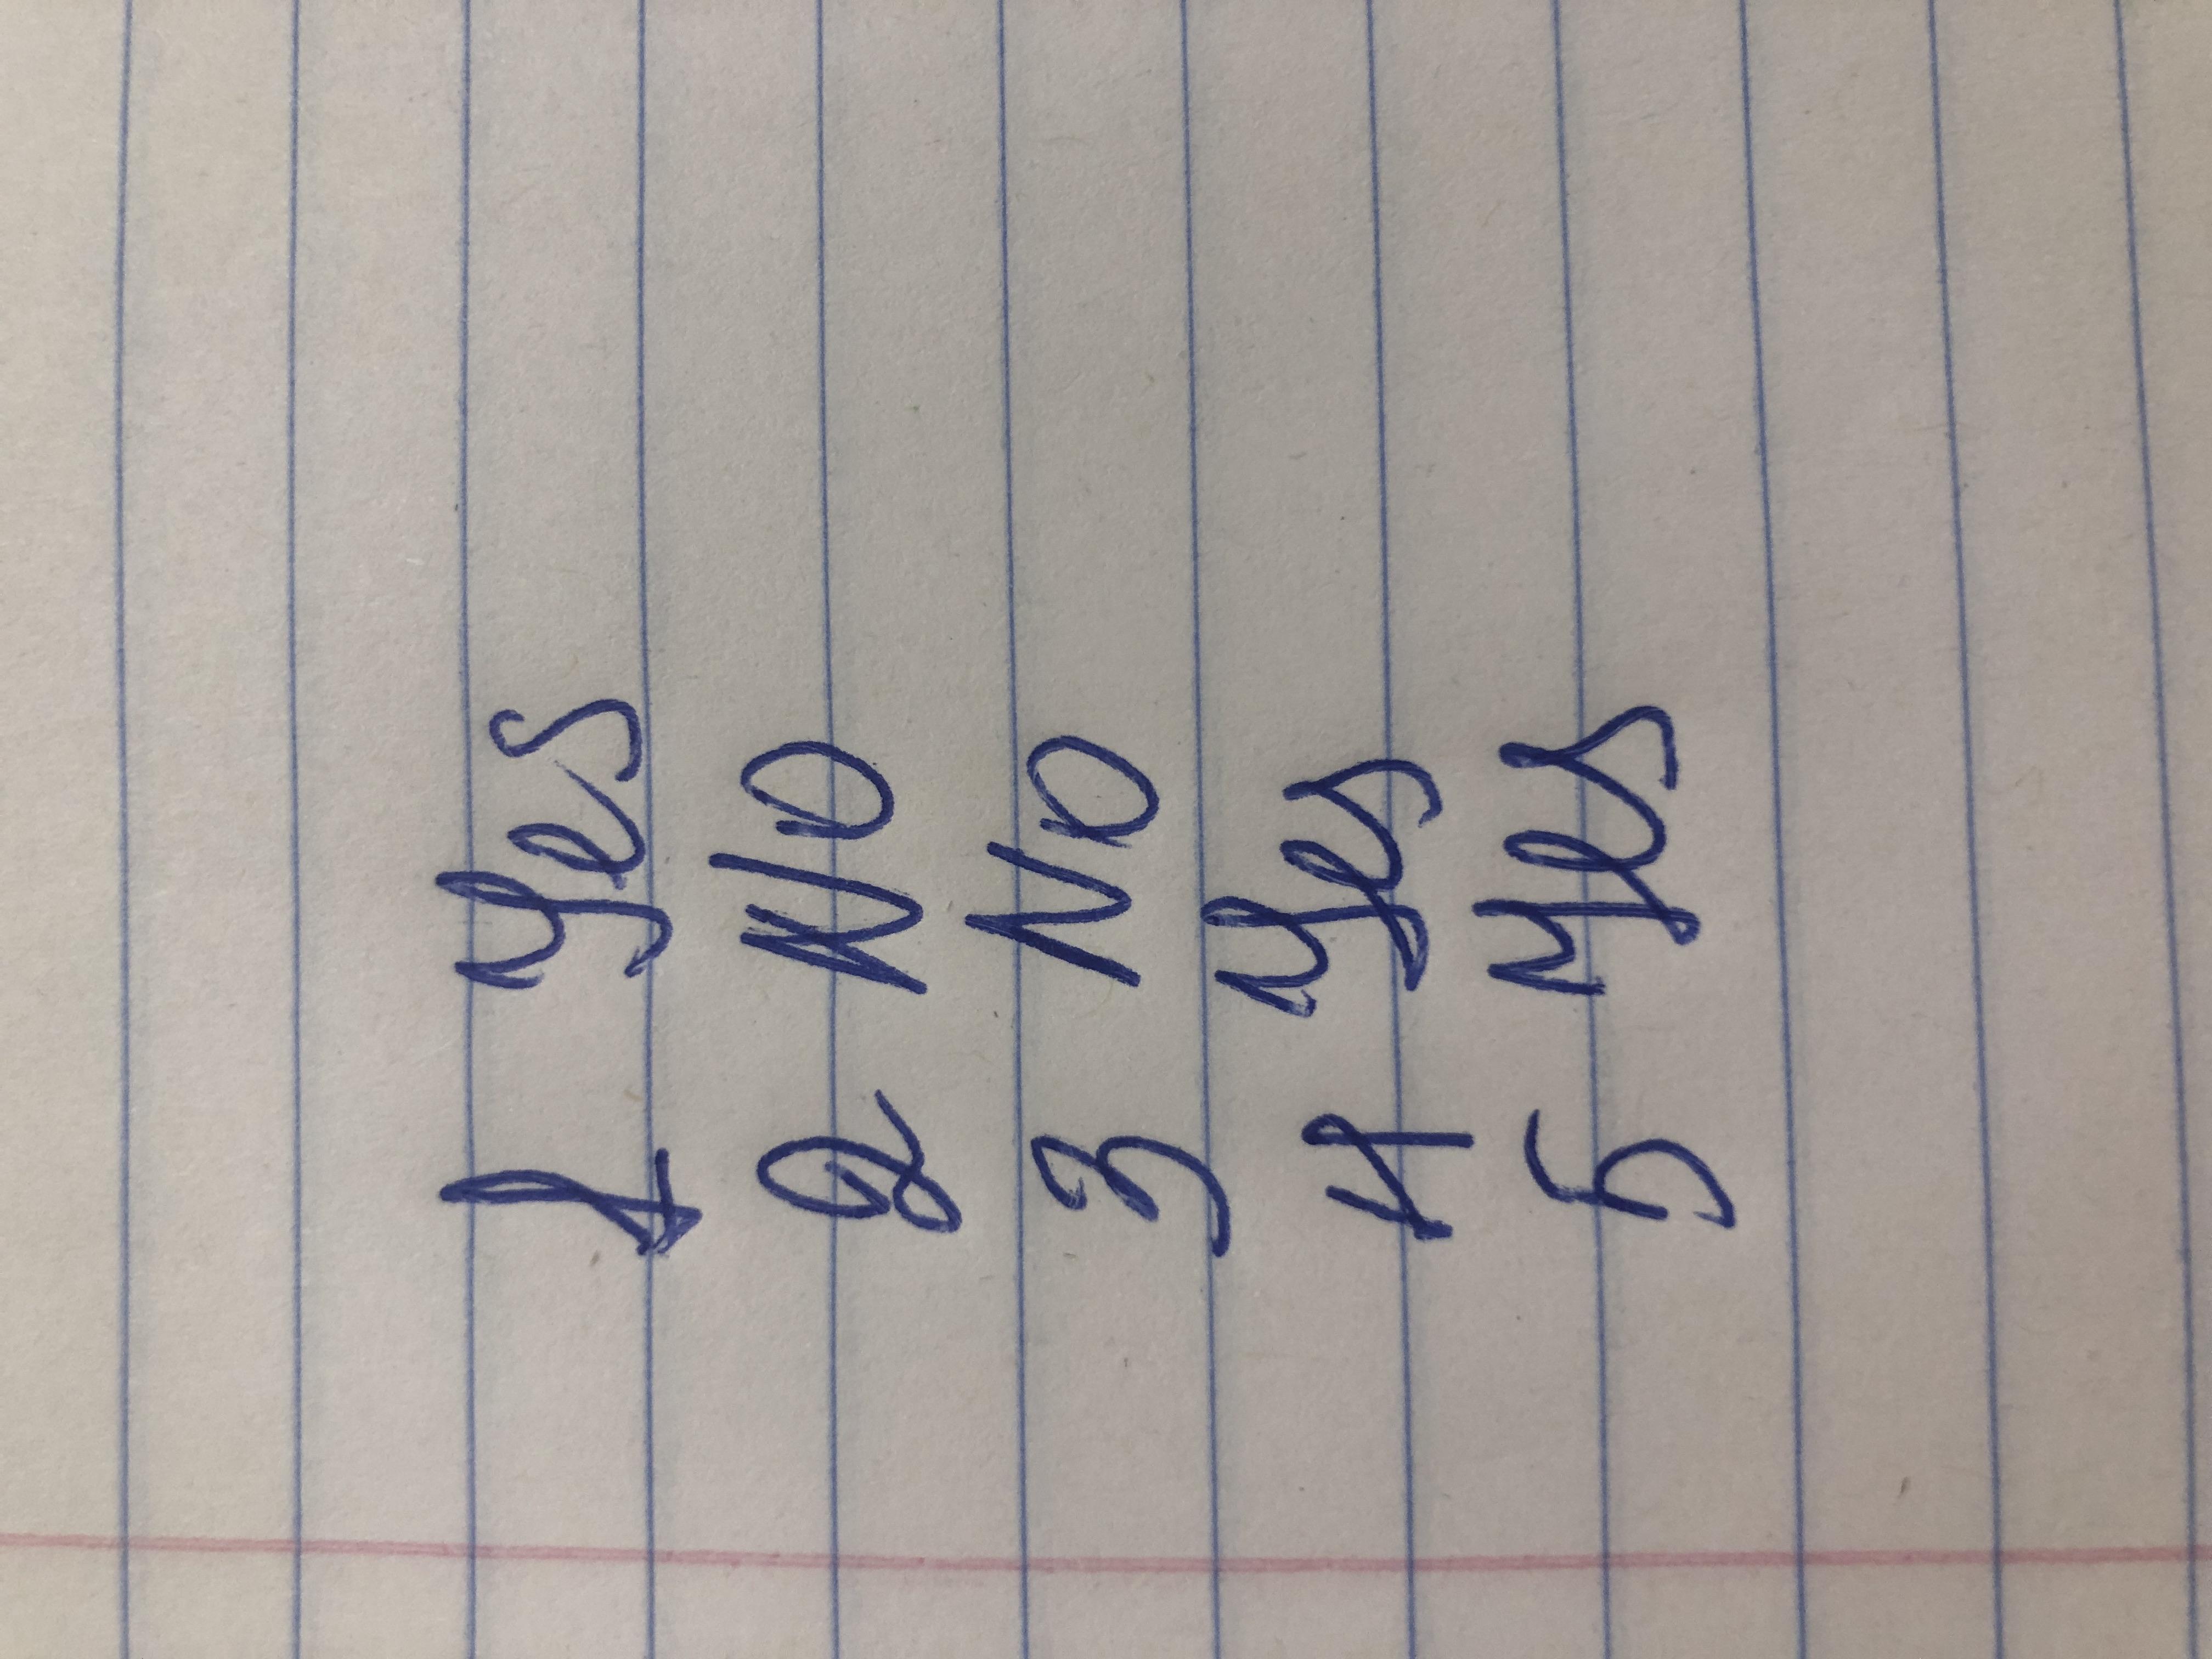 1 yes
2 NO
3 NO
4 yes
5 yes